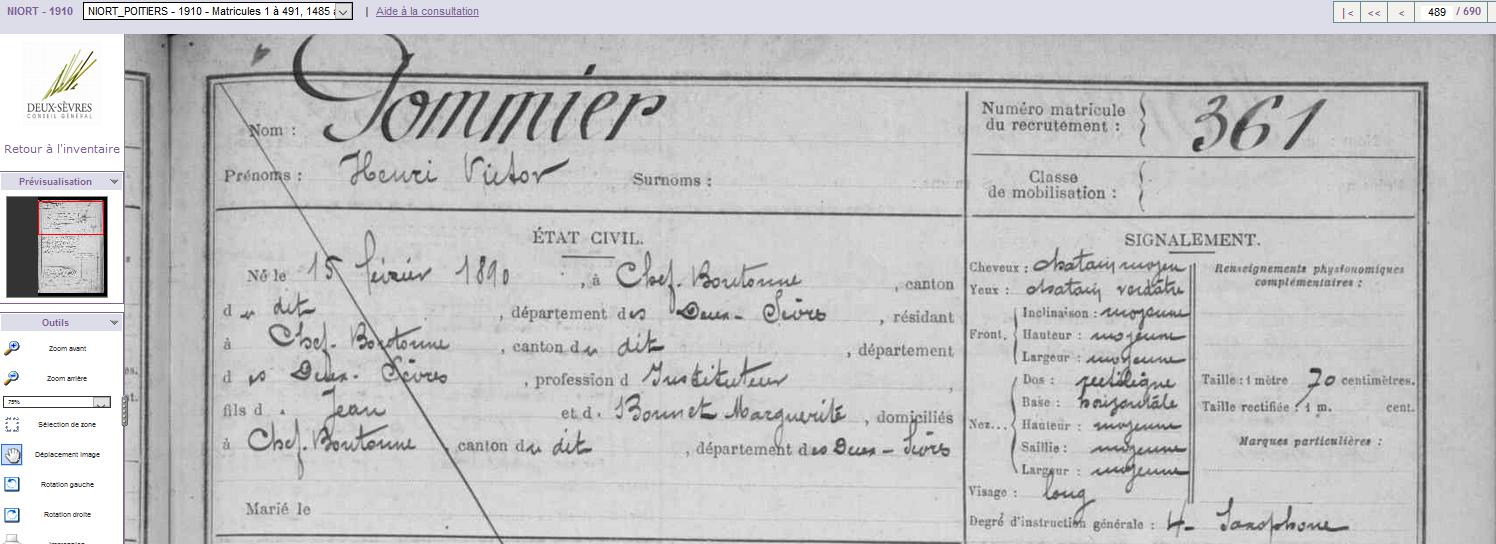 NIORT - 1910 NIORT_POITIERS - 1910 - Matricules 1 à 491, 1485 | Aide à la consultation |< << < 489 / 690
DEUX-SÈVRES
CONSEIL GÉNÉRAL
Retour à l'inventaire
Prévisualisation
Outils
Zoom avant
Zoom arrière
75%
Sélection de zone
Déplacement image
Rotation gauche
Rotation droite
Impression
Nom : Pommier
Prénoms : Henri Victor Surnoms :
Numéro matricule
du recrutement : 361
Classe
de mobilisation :
ÉTAT CIVIL.
Né le 15 février 1890, à Chef-Boutonne, canton
du dit, département des Deux-Sèvres, résidant
à Chef-Boutonne, canton du dit, département
des Deux-Sèvres, profession d Instituteur,
fils d. Jean et d. Bonnet Marguerite, domiciliés
à Chef-Boutonne, canton du dit, département des Deux-Sèvres
Marié le
SIGNALEMENT.
Cheveux : chatain moyen
Yeux : chatain verdâtre
Front. Inclinaison : moyenne
Hauteur : moyenne
Largeur : moyenne
Nez... Dos : rectiligne
Base : horizontale
Hauteur : moyenne
Saillie : moyenne
Largeur : moyenne
Visage : long
Renseignements physionomiques
complémentaires :
Taille : 1 mètre 70 centimètres.
Taille rectifiée : 1 m. cent.
Marques particulières :
Degré d'instruction générale : 4 - Saxophone